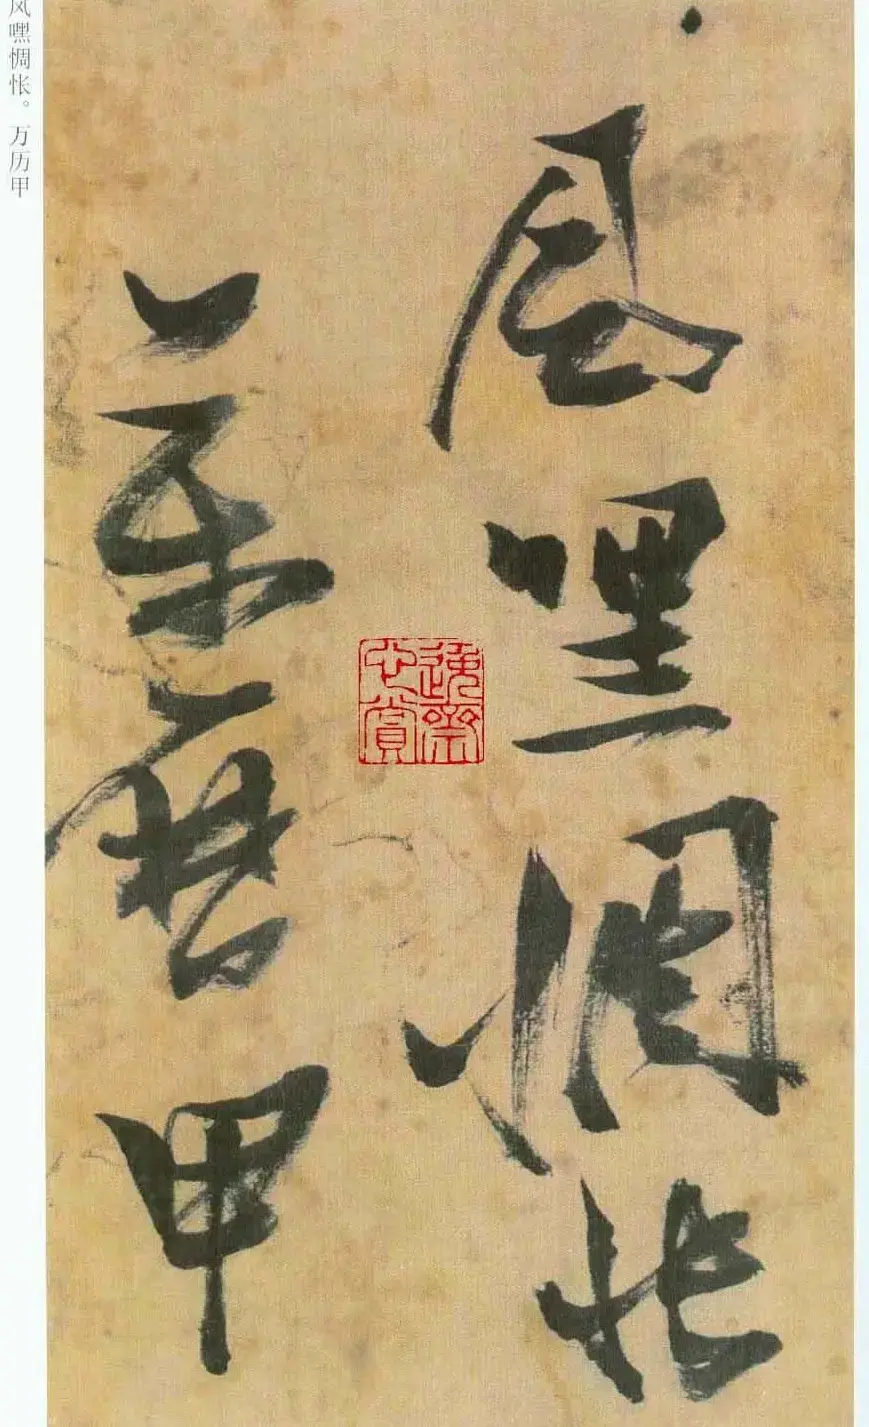 风嘿惆怅
萬曆甲
风嘿惆怅。万历甲